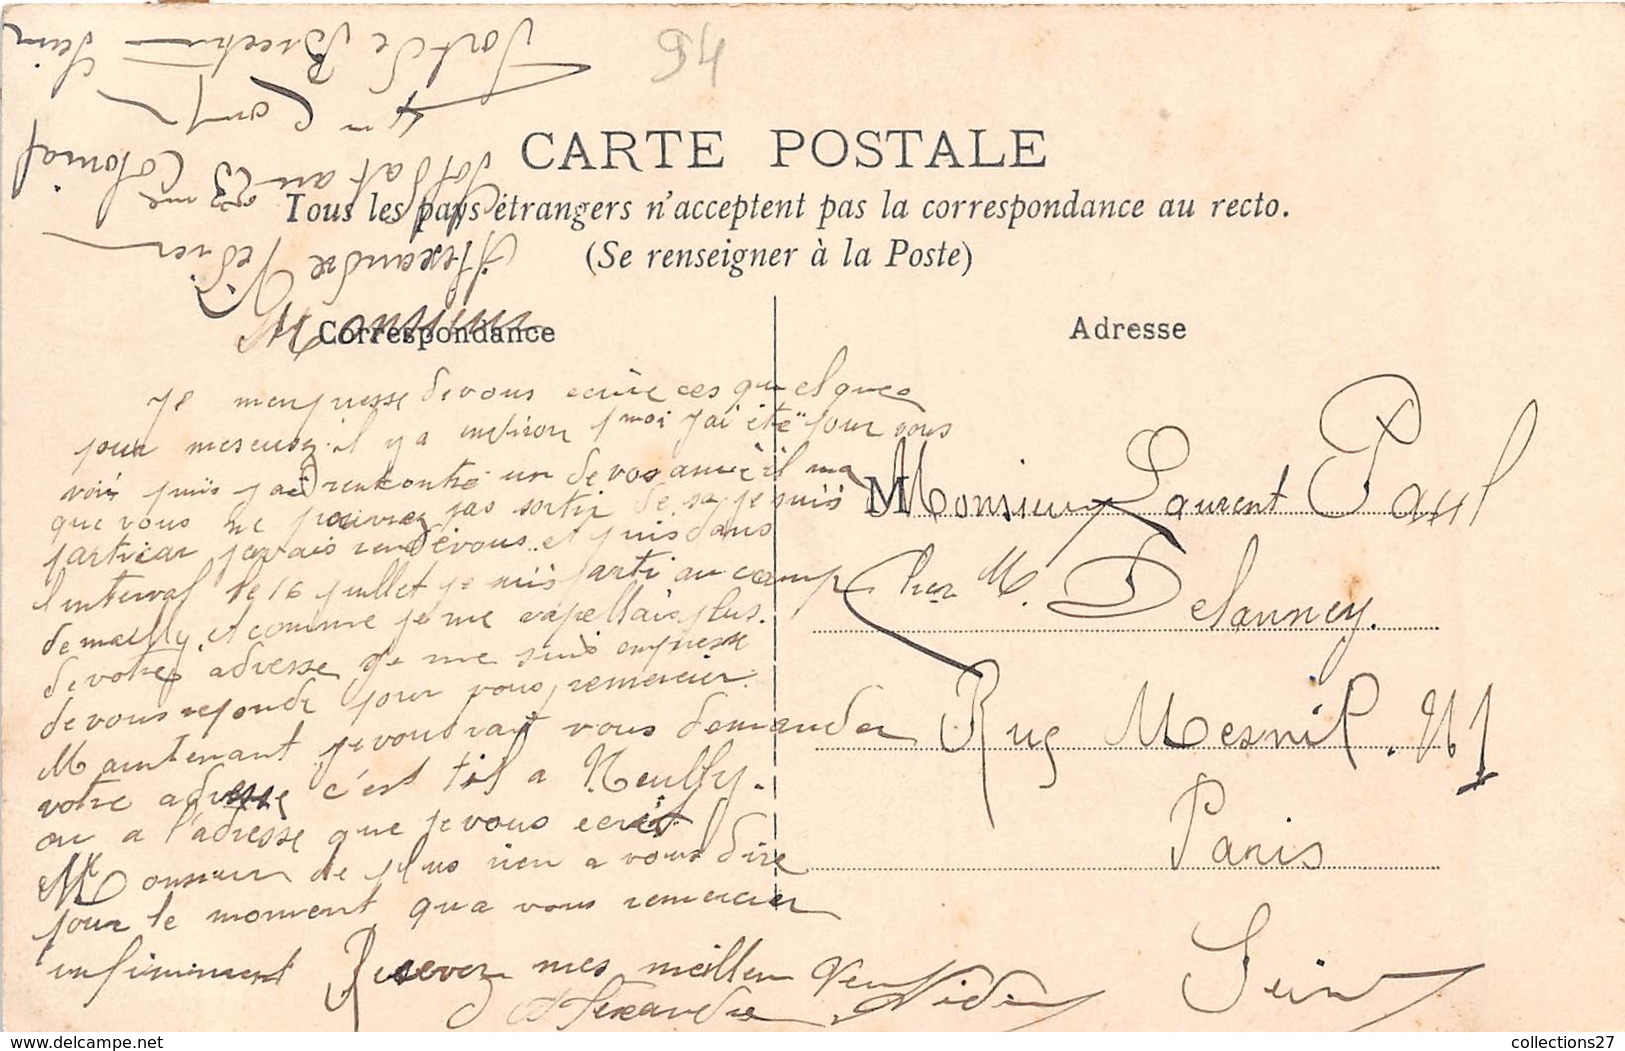 94
CARTE POSTALE
Tous les pays étrangers n'acceptent pas la correspondance au recto.
(Se renseigner à la Poste)
Alexandre
Soldat au 23 me Colonial
4m Comp
Fort de Bicetre Sein
Correspondance
Monsieur
je menpresse de vous ecrire ces quelques
pour mescusz il y a moi j'ai été pour vous
voir puis j'ai rencontré un de vos il ma
que vous ne pouvez pas sortir de sa je suis
partiear javais rendévous et puis dans
l'interval le 16 juillet je suis parti au camp
de mailly et comme je me rapellais plus.
de votre adresse je me suis empresse
de vous reponde pour vous remercier.
Maintenant je voudrait vous demander
votre adresse c'est til a Neuilly.
ou a l'adresse que je vous ecrit.
Monsieur de plus rien a vous dire
pour le moment qua vous remercier
infiniment Resevez mes meilleu
Alexandre
Adresse
M Monsieur Laurent Paul
Chez M. Delanney.
Rue Mesnil. N 1
Paris
Seine
collections27